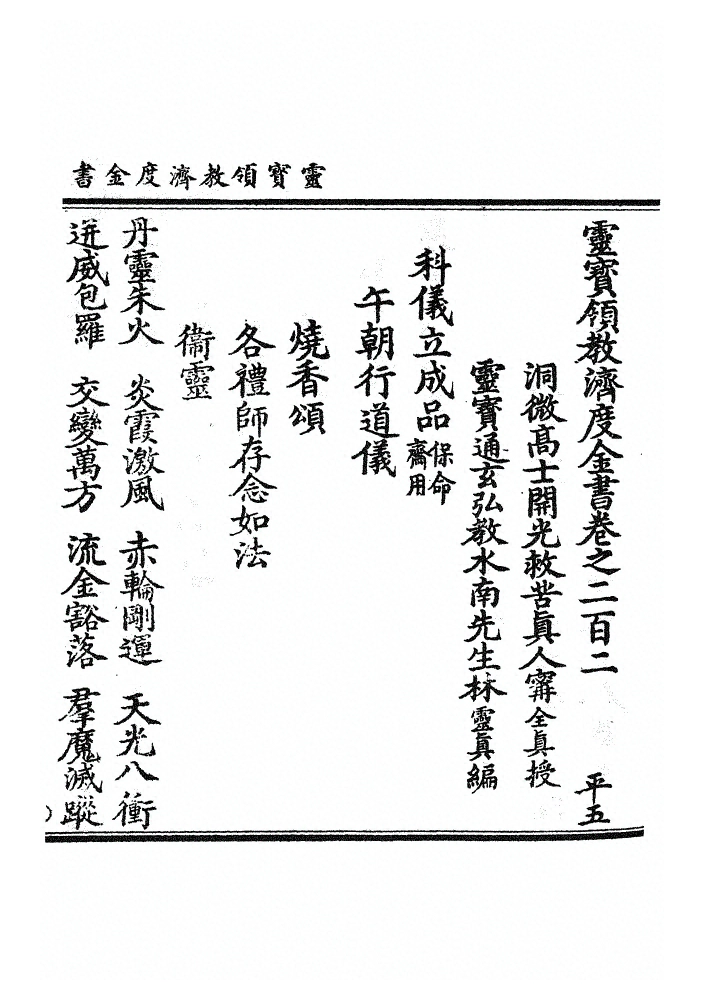 靈寶領教濟度金書
靈寶領教濟度金書卷之二百二 平五
洞微高士開光救苦眞人寗全眞授
靈寶通玄弘教水南先生林靈眞編
科儀立成品保命齋用
午朝行道儀
燒香頌
各禮師存念如法
衞靈
丹靈朱火 炎霞激風 赤輪剛運 天光八衝
迸威包羅 交變萬方 流金豁落 羣魔滅蹤